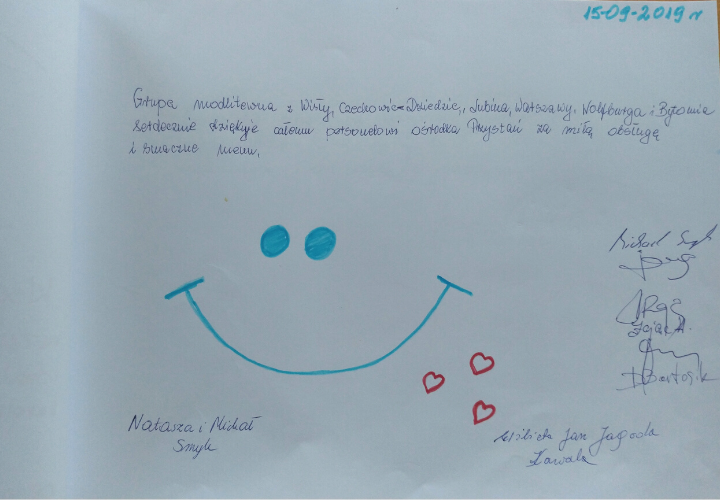 15-09-2019 r
Grupa modlitewna z Wisły, Czechowic-Dziedzic, Lubina, Warszawy, Wolfsburga i Bytomia
serdecznie dziękuje całemu personelowi ośrodka Przystań za miłą obsługę
i smaczne menu.
Michał Smyk
Zając A.
D Bartosik
Natasza i Michał
Smyk
Elżbieta Jan Jagoda
Kawala